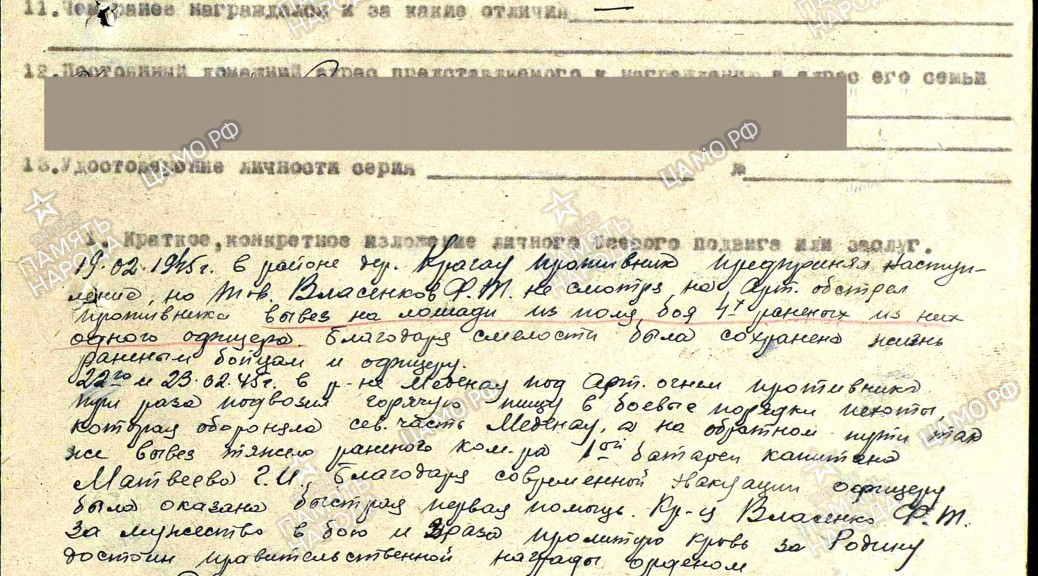 11.Чем ранее награждался и за какие отличия —
12.Постоянный домашний адрес представляемого к награждению и адрес его семьи
13.Удостоверение личности серия № 
1. Краткое,конкретное изложение личного боевого подвига или заслуг.
19.02.1945г. в районе дер. Крагау противник предпринял наступ-
ление, но тов. Власенков Ф.Т. не смотря на арт. обстрел
противника вывез на лошади из поля боя 4х раненых из них
одного офицера. Благодаря смелости была сохранена жизнь
раненым бойцам и офицеру.
22го и 23.02.45г. в р-не Меденау под арт. огнем противника
три раза подвозил горячую пищу в боевые порядки пехоты,
которая обороняла сев. часть Меденау, а на обратном пути так
же вывез тяжело раненого ком-ра 1ой батареи капитана
Матвеева Г.И., Благодаря современной эвакуации офицеру
была оказана быстрая первая помощь. Кр-ц Власенко Ф.Т.
за мужество в бою и 3 раза пролитую кровь за Родину
достоин правительственной награды орденом
ПАМЯТЬ НАРОДА
ЦАМО.РФ